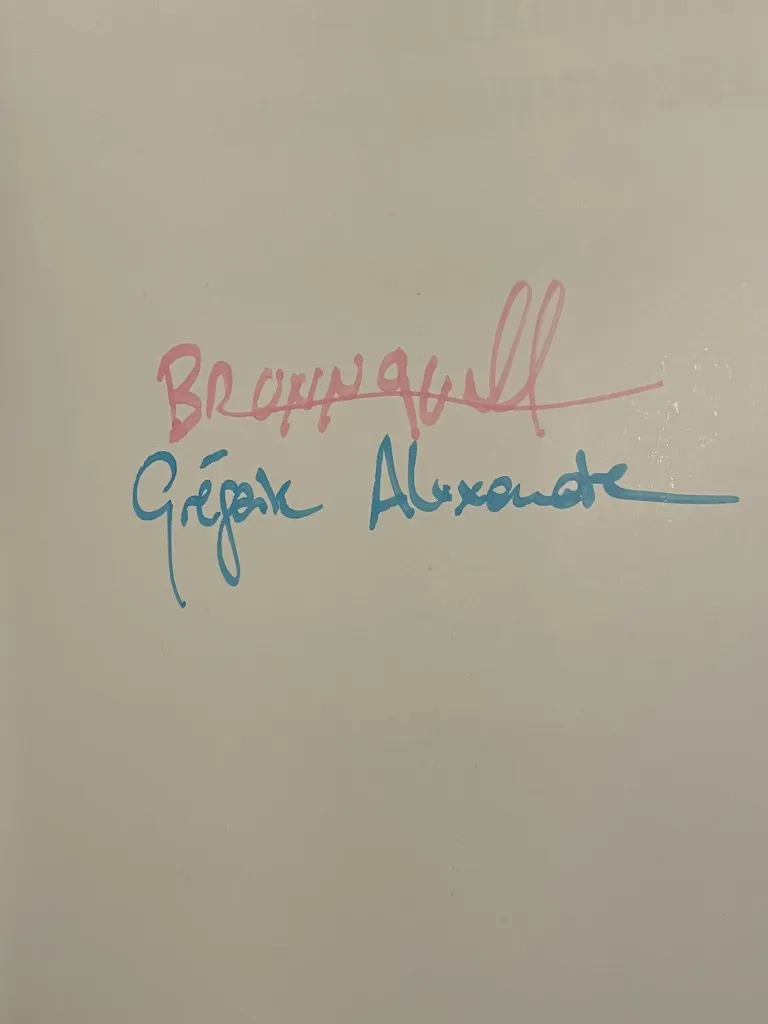 Brownquell
Grégoire Alexandre